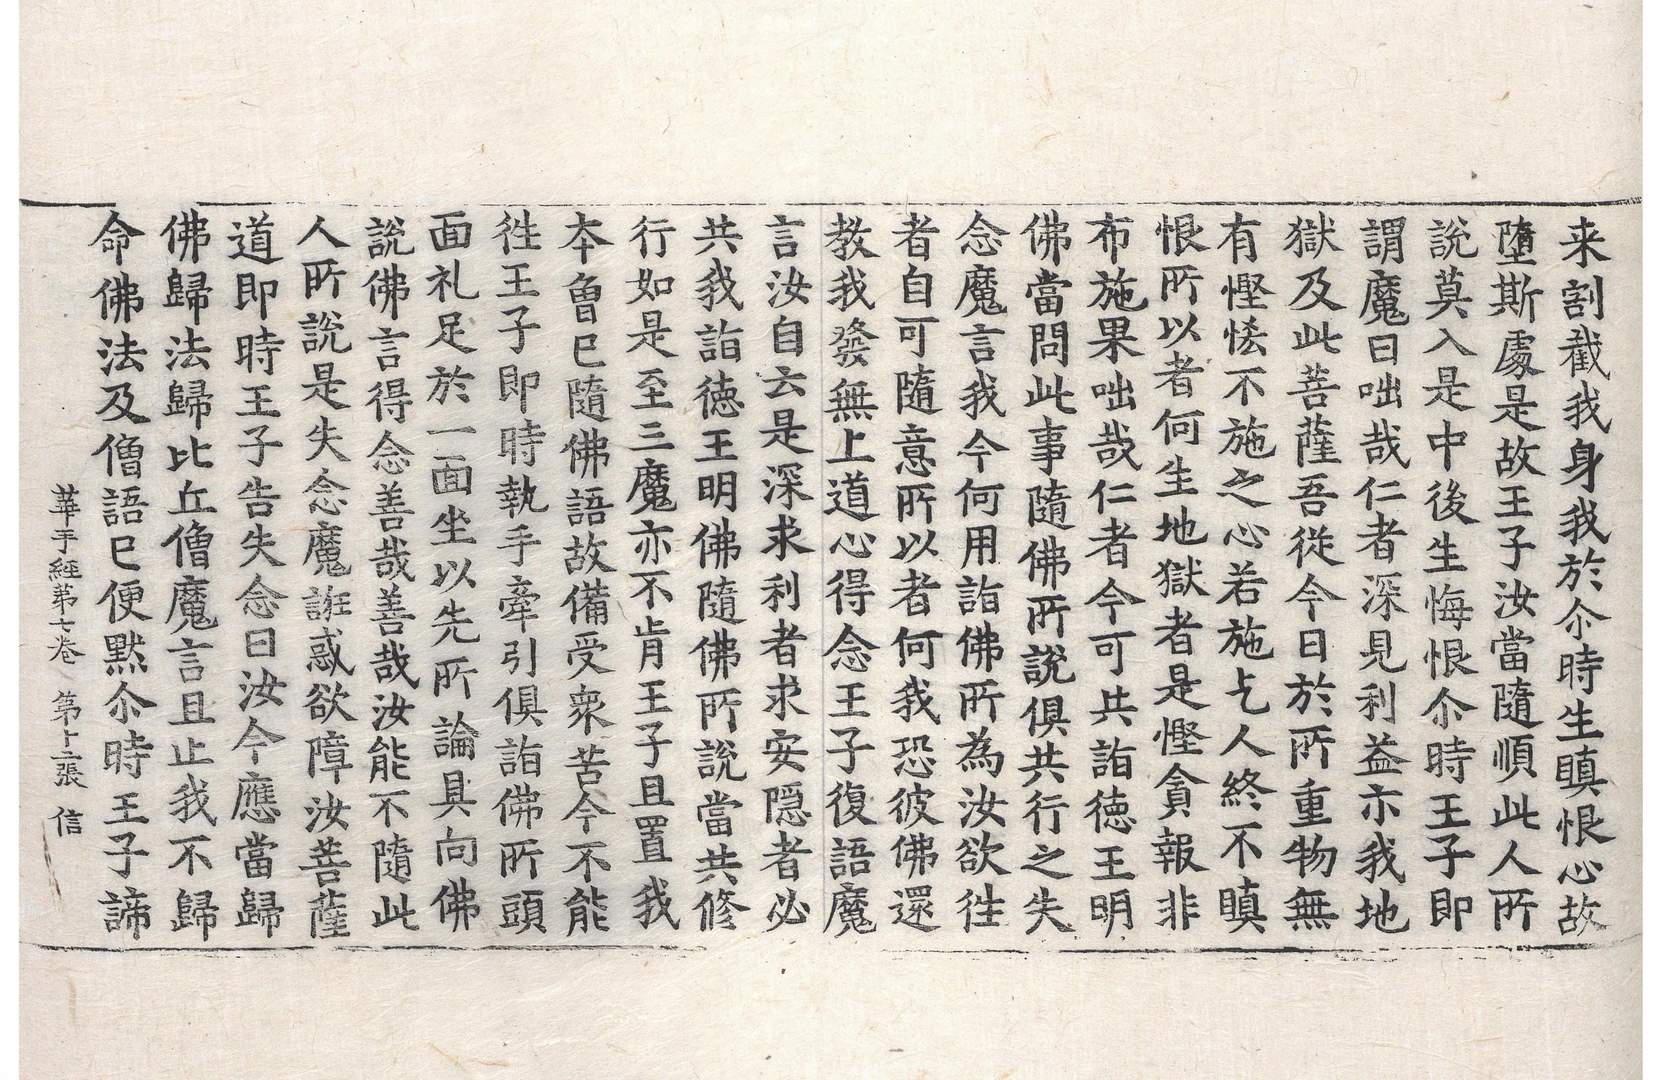 来割截我身我於尒時生瞋恨心故
墮斯處是故王子汝當隨順此人所
說莫入是中後生悔恨尒時王子即
謂魔曰咄哉仁者深見利益亦我地
獄及此菩薩吾從今日於所重物無
有慳悋不施之心若施乞人終不瞋
恨所以者何生地獄者是慳貪報非
布施果咄哉仁者今可共詣徳王明
佛當問此事隨佛所說俱共行之失
念魔言我今何用詣佛所為汝欲往
者自可隨意所以者何我恐彼佛還
教我發無上道心得念王子復語魔
言汝自云是深求利者求安隱者必
共我詣徳王明佛隨佛所說當共修
行如是至三魔亦不肯王子且置我
本曾已隨佛語故備受衆苦今不能
往王子即時執手牽引俱詣佛所頭
面礼足於一面坐以先所論具向佛
說佛言得念善哉善哉汝能不隨此
人所說是失念魔誑惑欲障汝菩薩
道即時王子告失念曰汝今應當歸
佛歸法歸比丘僧魔言且止我不歸
命佛法及僧語已便默尒時王子諦
華手經第七卷 第十二張 信